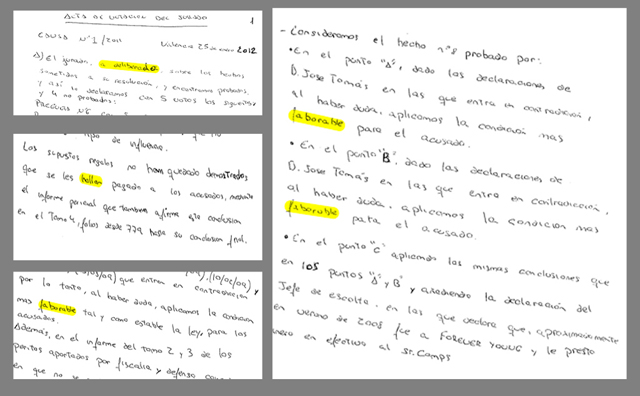 ACTA DE VOTACION DEL JURADO
1
CAUSA Nº 1/2011
Valencia 25 de enero 2012
A) El jurado, a deliberado, sobre los hechos
sometidos a su resolución, y encuentran probados,
y así lo declaramos con 5 votos los siguientes
y 4 no probados:
tipo de influencia.
Los supuestos regalos no han quedado demostrados
que se les hallan pagado a los acusados, mediante
el informe pericial que también afirma esta conclusión
en el Tomo 4, folios desde 779 hasta su conclusión final.
que entran en contradicción y
por lo tanto, al haber duda, aplicamos la condición
mas faborable tal y como estable la ley, para los
acusados.
Además, en el informe del tomo 2 y 3 de los
peritos aportados por fiscalía y defensa
en que no se
- Consideramos el hecho nº8 probado por:
• En el punto "A", dado las declaraciones de
D. Jose Tomás en las que entra en contradicción,
al haber duda, aplicamos la condición mas
faborable para el acusado.
• En el punto "B", dado las declaraciones de
D. Jose Tomás en las que entra en contradicción,
al haber duda, aplicamos la condición mas
faborable para el acusado.
• En el punto "C" aplicamos las mismas conclusiones que
en los puntos "A" y B" y añadiendo la declaración del
Jefe de escolta, en las que declara que, aproximadamente
en verano de 2005 fue a FOREVER YOUNG y le presto
dinero en efectivo al Sr. Camps